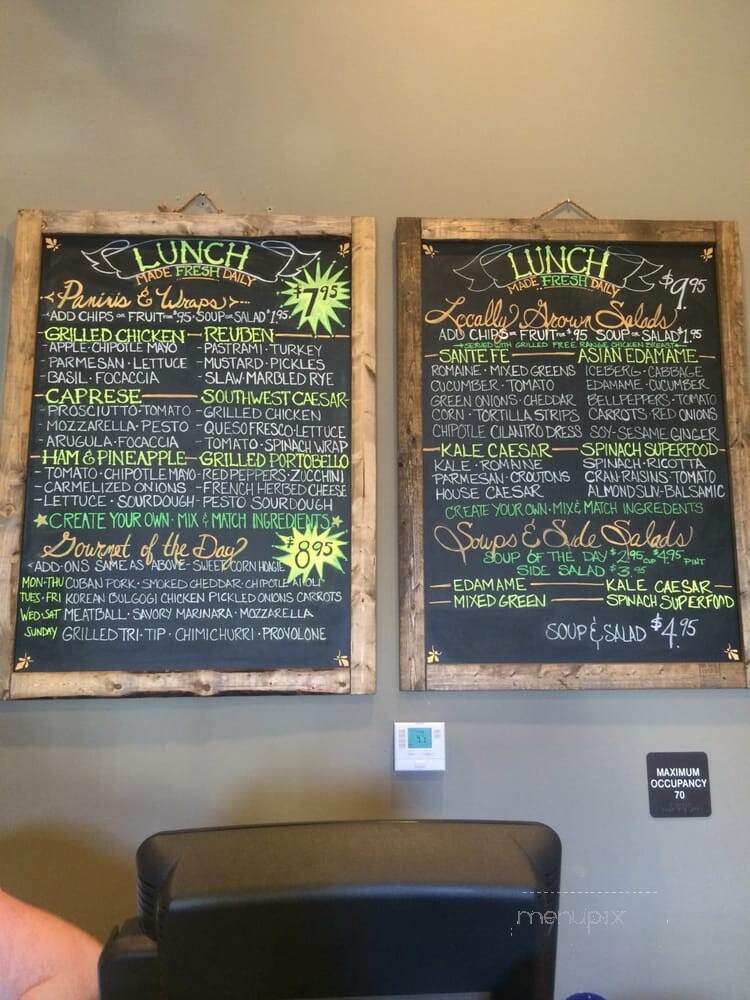 LUNCH
MADE FRESH DAILY
Paninis & Wraps
$7.95
ADD CHIPS OR FRUIT FOR $.95 · SOUP OR SALAD $1.95
GRILLED CHICKEN
APPLE · CHIPOTLE MAYO
PARMESAN · LETTUCE
BASIL · FOCACCIA
REUBEN
PASTRAMI · TURKEY
MUSTARD · PICKLES
SLAW MARBLED RYE
CAPRESE
PROSCIUTTO · TOMATO
MOZZARELLA · PESTO
ARUGULA · FOCACCIA
SOUTHWEST CAESAR
GRILLED CHICKEN
QUESO FRESCO · LETTUCE
TOMATO · SPINACH WRAP
HAM & PINEAPPLE
TOMATO · CHIPOTLE MAYO
CARMELIZED ONIONS
LETTUCE · SOURDOUGH
GRILLED PORTOBELLO
RED PEPPERS · ZUCCHINI
FRENCH HERBED CHEESE
PESTO SOURDOUGH
CREATE YOUR OWN · MIX & MATCH INGREDIENTS
Gourmet of the Day
$8.95
ADD-ONS SAME AS ABOVE · SWEET CORN HOAGIE
MON · THU CUBAN PORK · SMOKED CHEDDAR · CHIPOTLE AIOLI
TUES · FRI KOREAN BULGOGI CHICKEN PICKLED ONIONS CARROTS
WED · SAT MEATBALL · SAVORY MARINARA · MOZZARELLA
SUNDAY GRILLED TRI-TIP · CHIMICHURRI · PROVOLONE
LUNCH
MADE FRESH DAILY
$9.95
Locally Grown Salads
ADD CHIPS OR FRUIT FOR $.95 SOUP OR SALAD $1.95
SERVED WITH GRILLED FREE RANGE CHICKEN BREAST
SANTE FE
ROMAINE · MIXED GREENS
CUCUMBER · TOMATO
GREEN ONIONS · CHEDDAR
CORN · TORTILLA STRIPS
CHIPOTLE CILANTRO DRESS
ASIAN EDAMAME
ICEBERG · CABBAGE
EDAMAME · CUCUMBER
BELLPEPPERS · TOMATO
CARROTS · RED ONIONS
SOY-SESAME GINGER
KALE CAESAR
KALE · ROMAINE
PARMESAN · CROUTONS
HOUSE CAESAR
SPINACH SUPERFOOD
SPINACH · RICOTTA
CRAN-RAISINS · TOMATO
ALMOND SLIV · BALSAMIC
CREATE YOUR OWN · MIX & MATCH INGREDENTS
Soups & Side Salads
SOUP OF THE DAY $2.95 CUP $4.95 PINT
SIDE SALAD $3.95
EDAMAME
MIXED GREEN
KALE CAESAR
SPINACH SUPERFOOD
SOUP & SALAD $4.95
MAXIMUM
OCCUPANCY
70
menupix